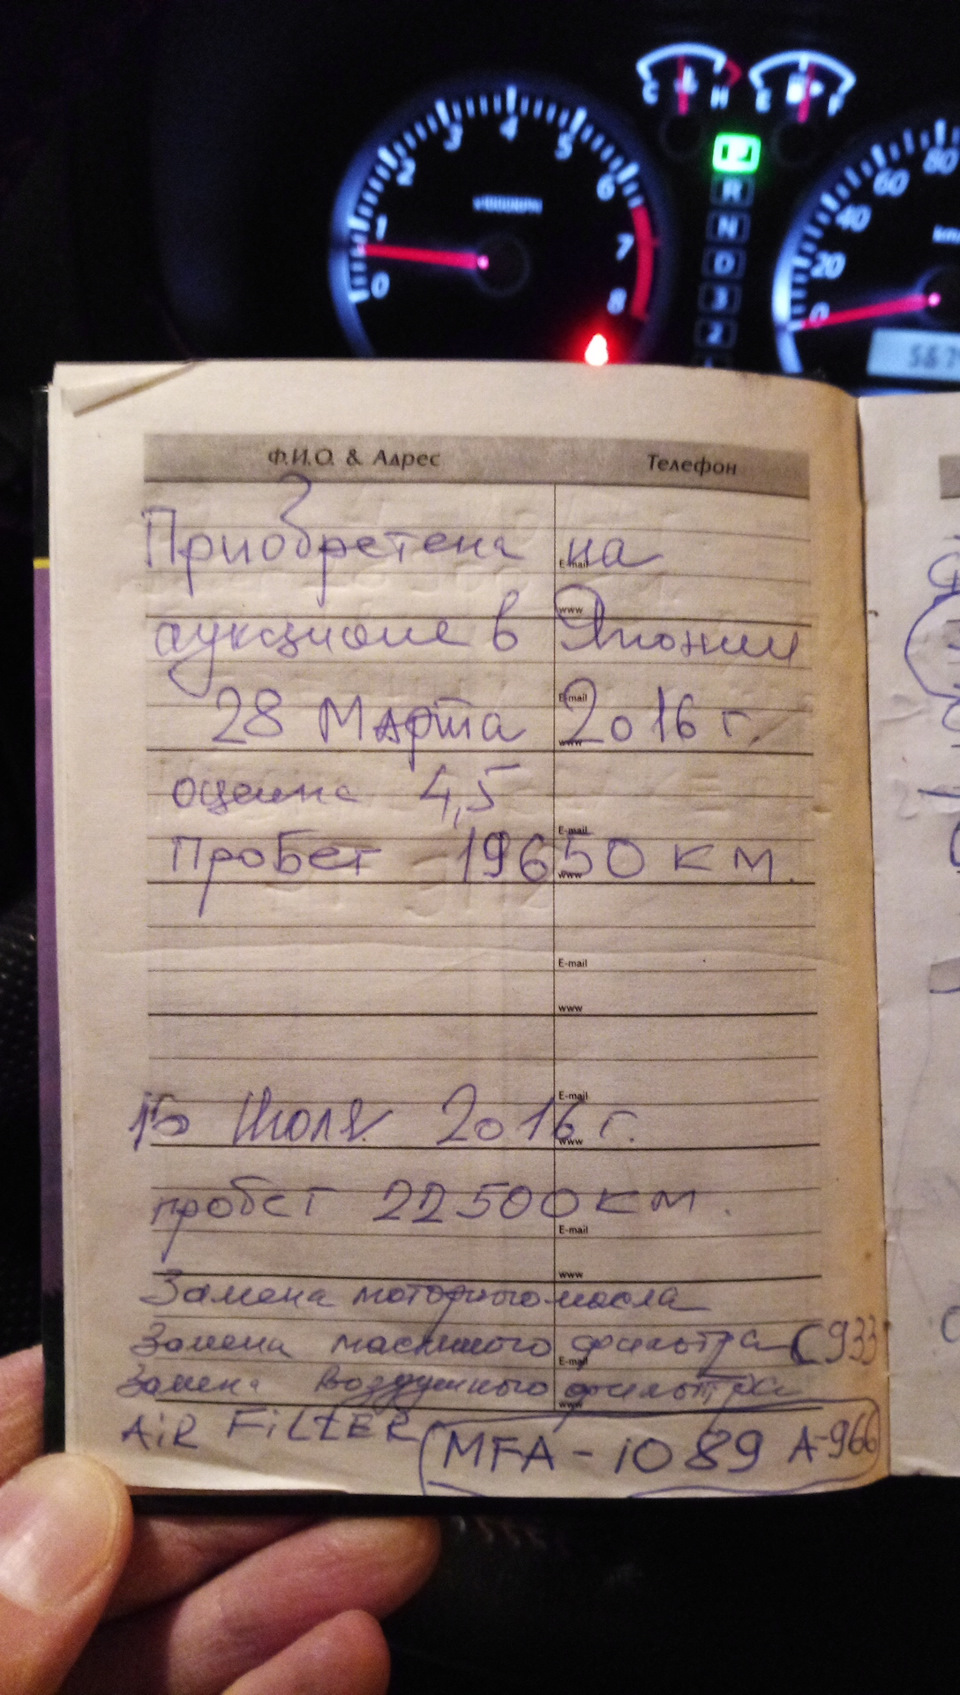 C H E F
1 2 3 4 5 6 7 8 0
x1000RPM
P
R
N
D
3
2
0 20 40 60 80
km
567
Ф.И.О. & Адрес Телефон
Приобретена на
аукционе в Японии
28 Марта 2016 г.
оценка 4,5
Пробег 19650 км.
15 Июля 2016 г.
пробег 22500 км.
Замена моторного масла
Замена масляного фильтра C933
Замена воздушного фильтра
AiR FiLtER MFA-1089 A-966
E-mail
www
E-mail
www
E-mail
www
E-mail
www
E-mail
www
E-mail
www
E-mail
www